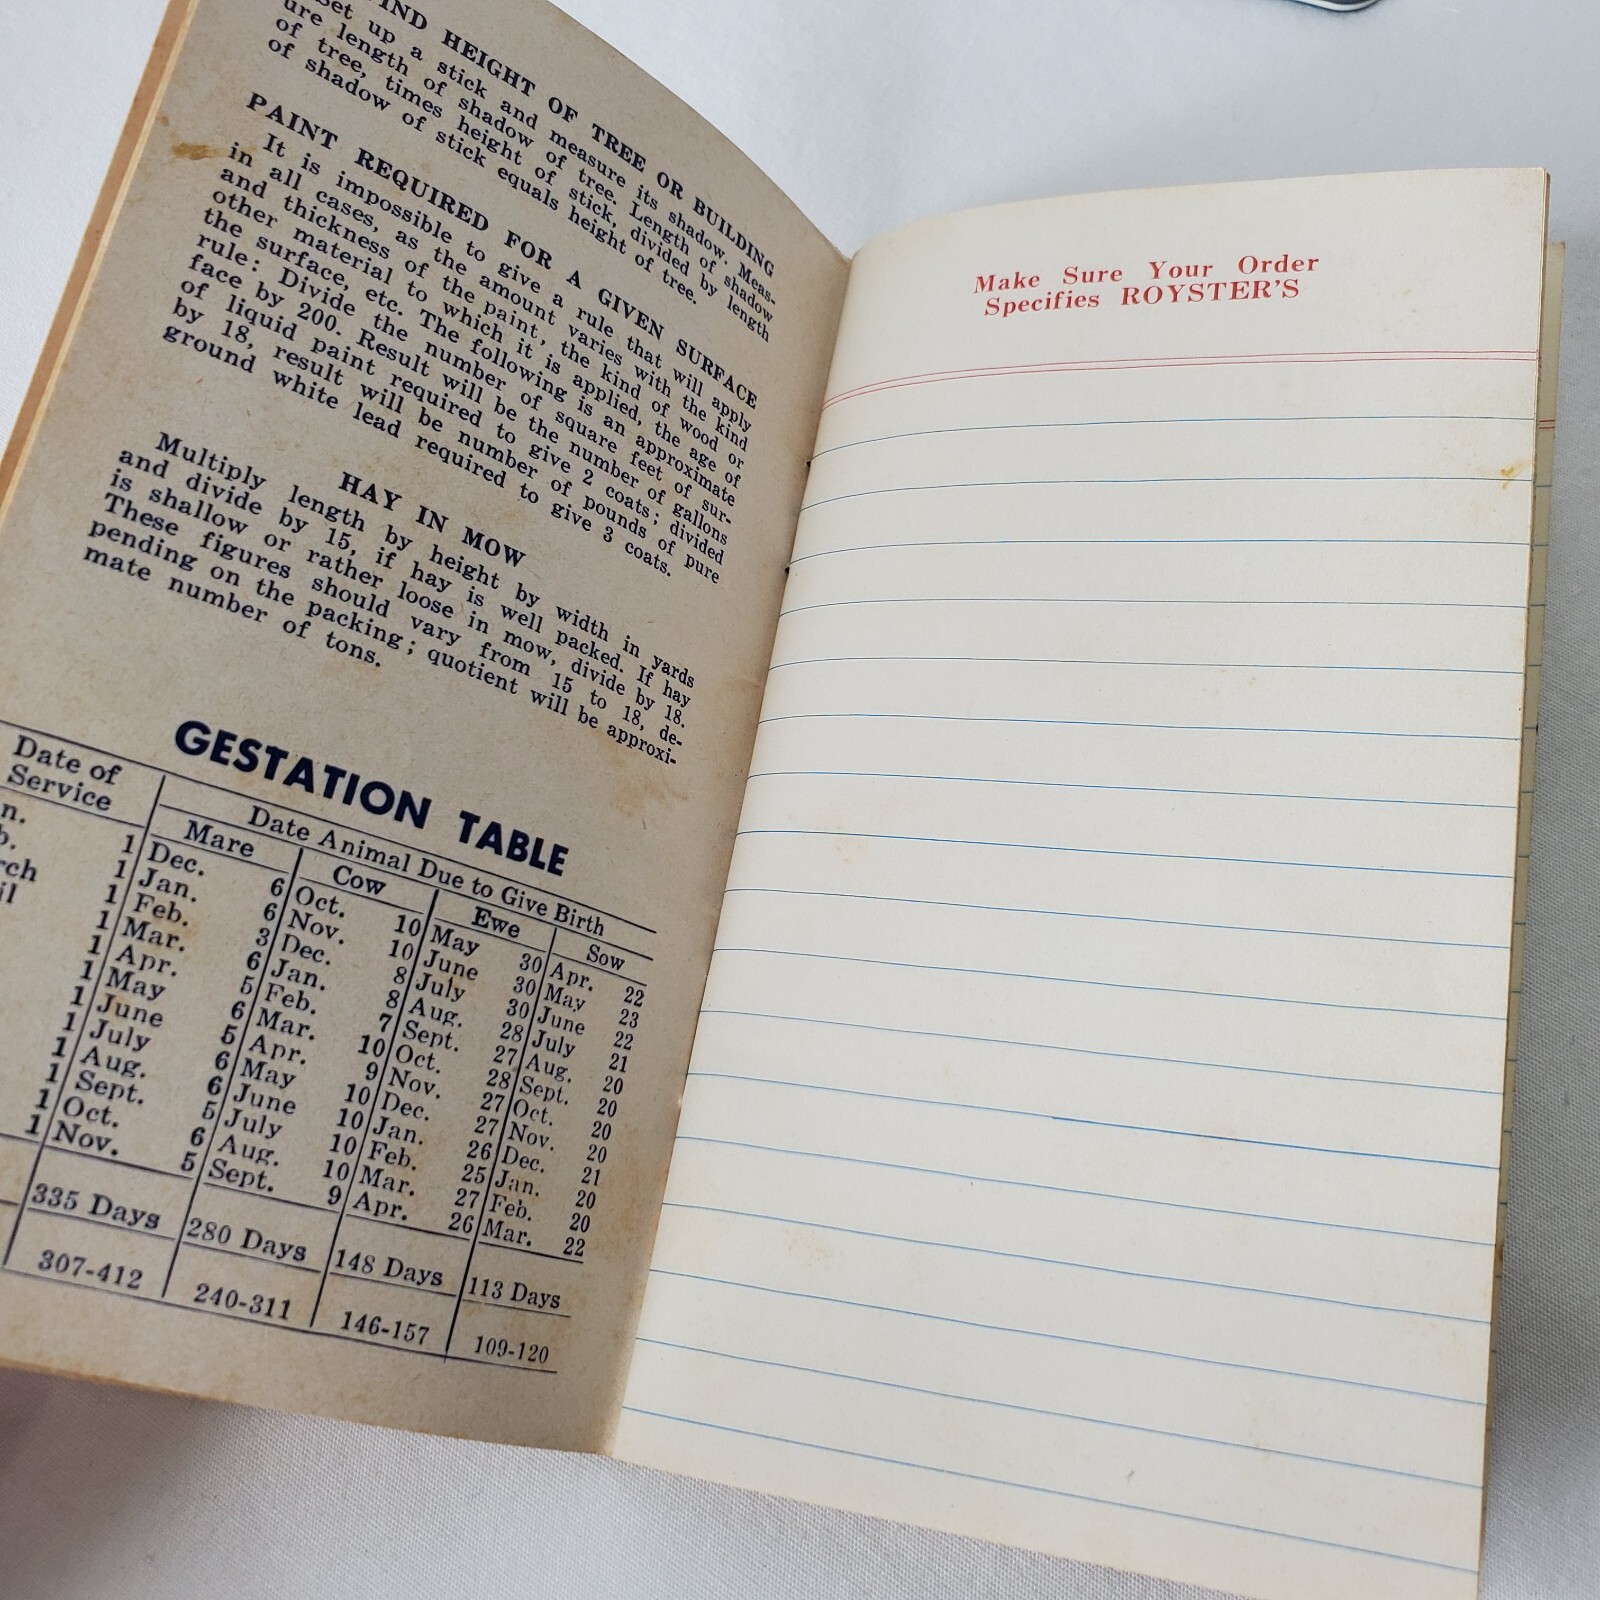 FIND HEIGHT OF TREE OR BUILDING
Set up a stick and measure its shadow. Meas-
ure length of shadow of tree. Length of shadow
of tree, times height of stick, divided by length
of shadow of stick equals height of tree.
PAINT REQUIRED FOR A GIVEN SURFACE
It is impossible to give a rule that will apply
in all cases, as the amount varies with the kind
and thickness of the paint, the kind of wood or
other material to which it is applied, the age of
the surface, etc. The following is an approximate
rule: Divide the number of square feet of sur-
face by 200. Result will be the number of gallons
of liquid paint required to give 2 coats; divided
by 18, result will be number of pounds of pure
ground white lead required to give 3 coats.
HAY IN MOW
Multiply length by height by width in yards
and divide by 15, if hay is well packed. If hay
is shallow or rather loose in mow, divide by 18.
These figures should vary from 15 to 18, de-
pending on the packing; quotient will be approxi-
mate number of tons.
GESTATION TABLE
Date of Service Date Animal Due to Give Birth
Mare Cow Ewe Sow
n. 1 Dec. 6 Oct. 10 May 30 Apr. 22
b. 1 Jan. 6 Nov. 10 June 30 May 23
rch 1 Feb. 3 Dec. 8 July 30 June 22
il 1 Mar. 6 Jan. 8 Aug. 28 July 21
1 Apr. 5 Feb. 7 Sept. 27 Aug. 20
1 May 6 Mar. 10 Oct. 28 Sept. 20
1 June 5 Apr. 9 Nov. 27 Oct. 20
1 July 6 May 10 Dec. 27 Nov. 20
1 Aug. 6 June 10 Jan. 26 Dec. 21
1 Sept. 5 July 10 Feb. 25 Jan. 20
1 Oct. 6 Aug. 10 Mar. 27 Feb. 20
1 Nov. 5 Sept. 9 Apr. 26 Mar. 22
335 Days 280 Days 148 Days 113 Days
307-412 240-311 146-157 109-120
Make Sure Your Order
Specifies ROYSTER'S